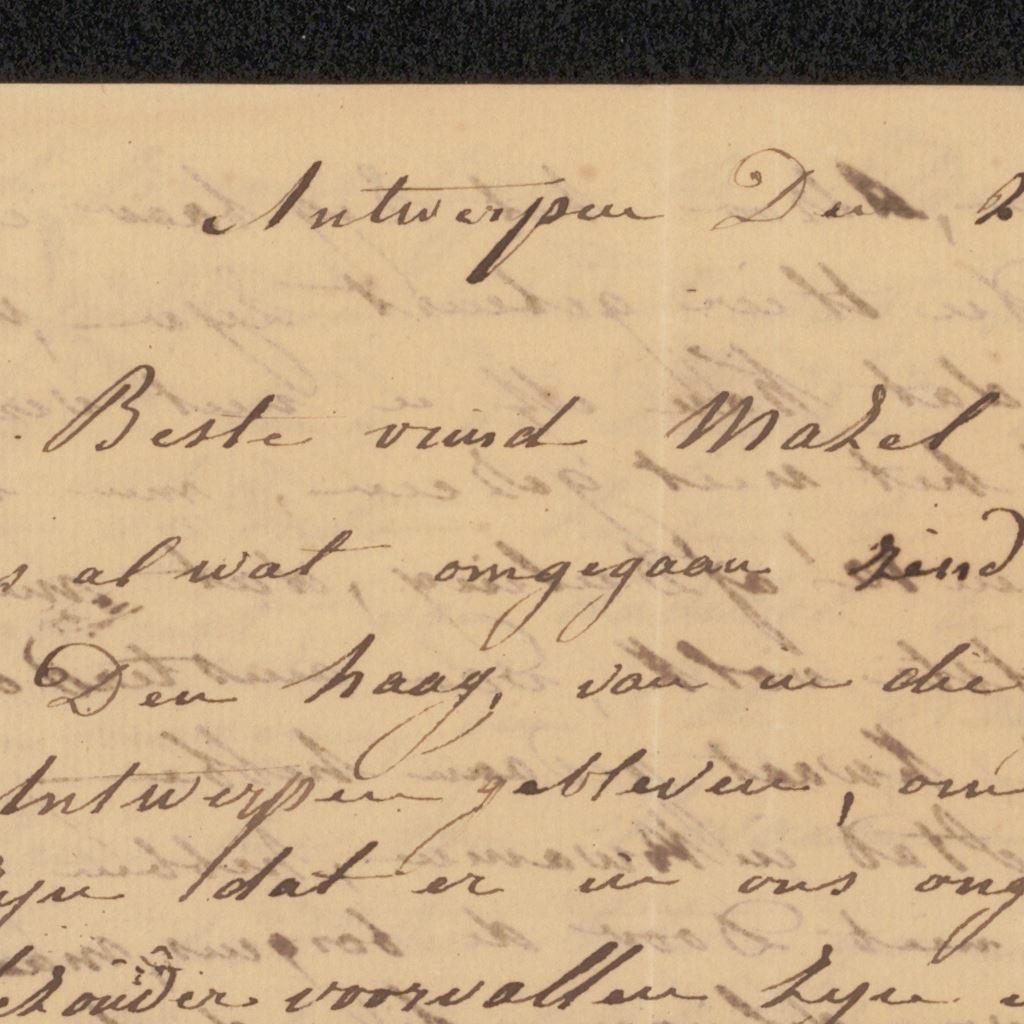 Antwerpen Den 2
Beste vriend Makel
s al wat omgegaan zind
Den haag, van in die
Antwerpen gebleven, om
zyn dat er in ons ong
voorvallen zyn